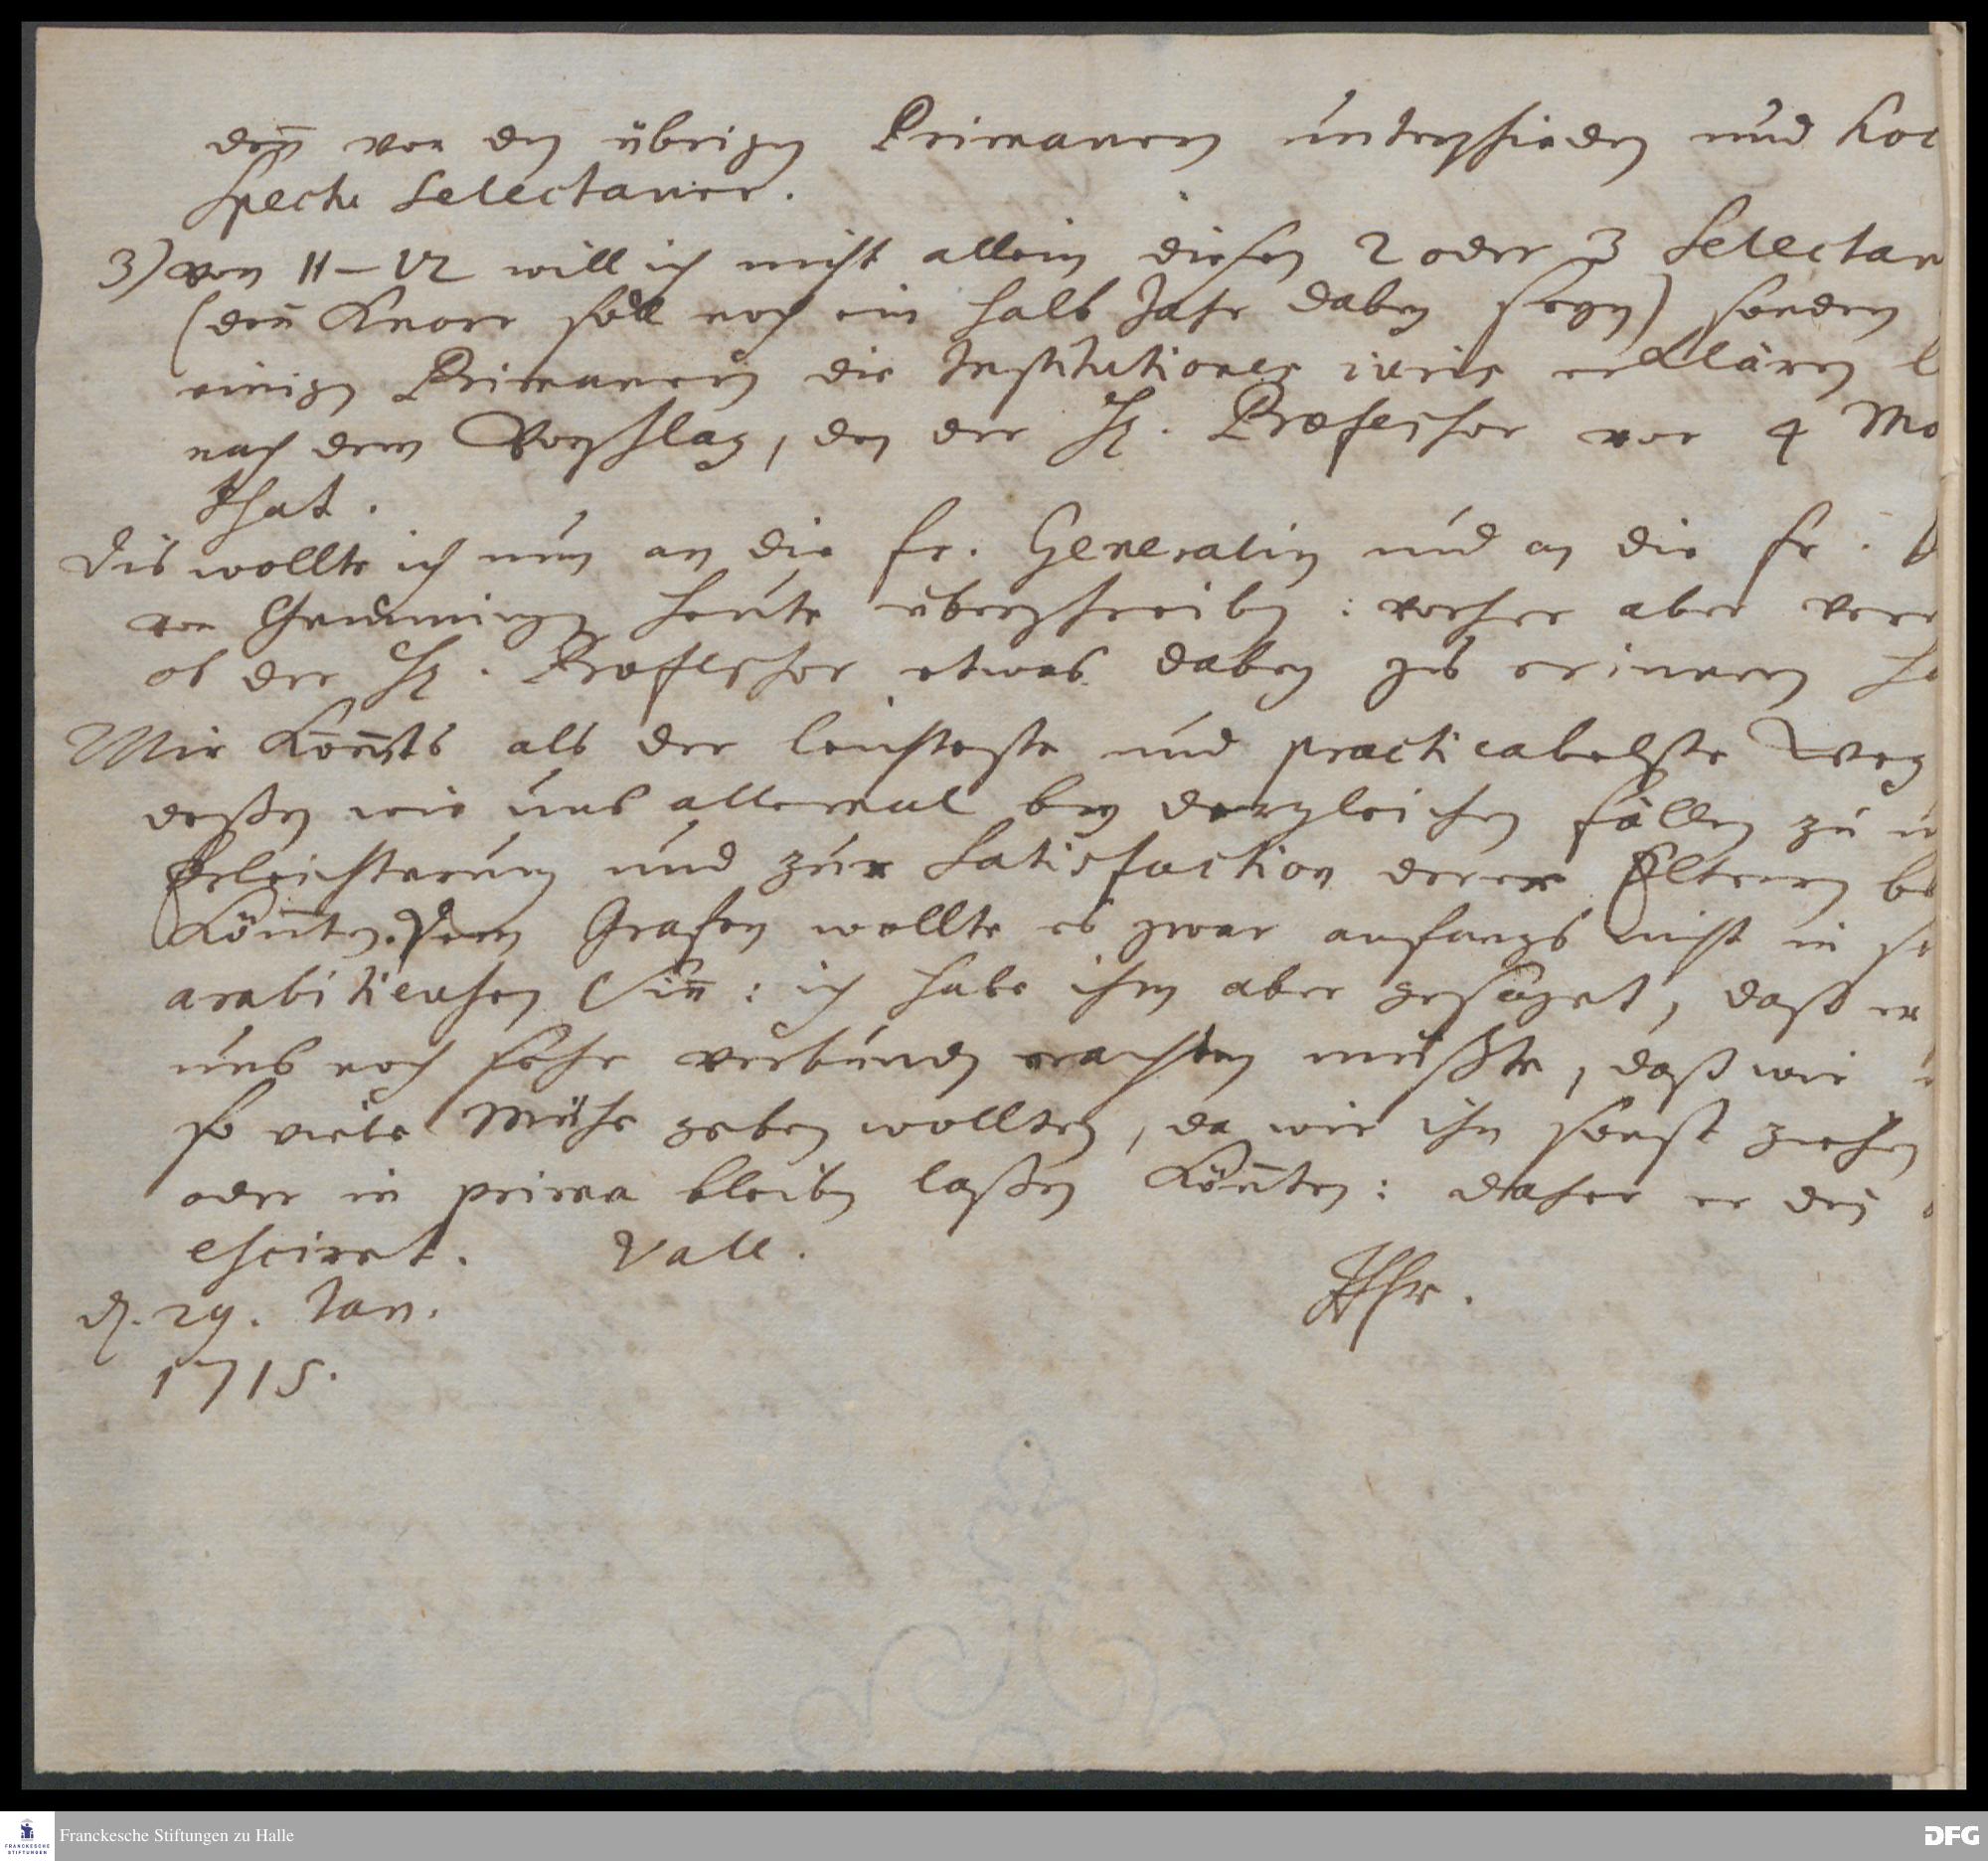 deñ von den übrigen Primanern unterschieden und hoc
spectu Selectaner.
3) von 11–12 will ich nicht allein diesen 2 oder 3 Selectan
(deñ Knorr soll noch ein halb Jahr dabey seyn) sondern
einigen Primanern die Institutiones iuris erklären
nach dem Vorschlag, den der H. Professor vor 4 Mo
that.
Dis wollte ich nun an die Fr. Generalin und an die Fr.
von heute überschreiben: vorher aber ver
ob der H. Professor etwas dabey zu erinnern ha
Mir kom̃ts als der leichteste und practicabelste Weg
deßen wir uns allemal bey dergleichen Fällen zu u
Erleichterung und zur Satisfaction derer Eltern be
Köñten. Dem Grafen wollte es zwar anfangs nicht in se
ambitieusen Siñ: ich habe ihm aber gesaget, daß er
uns noch sehr verbunden erachten müßte, daß wir
so viele Mühe geben wollten, da wir ihn sonst gehen
oder in prima bleiben laßen köñten: daher er deñ
esciret. Vale.
d. 29. Jan.
1715.
Franckesche Stiftungen zu Halle
FRANCKESCHE
STIFTUNGEN
DFG